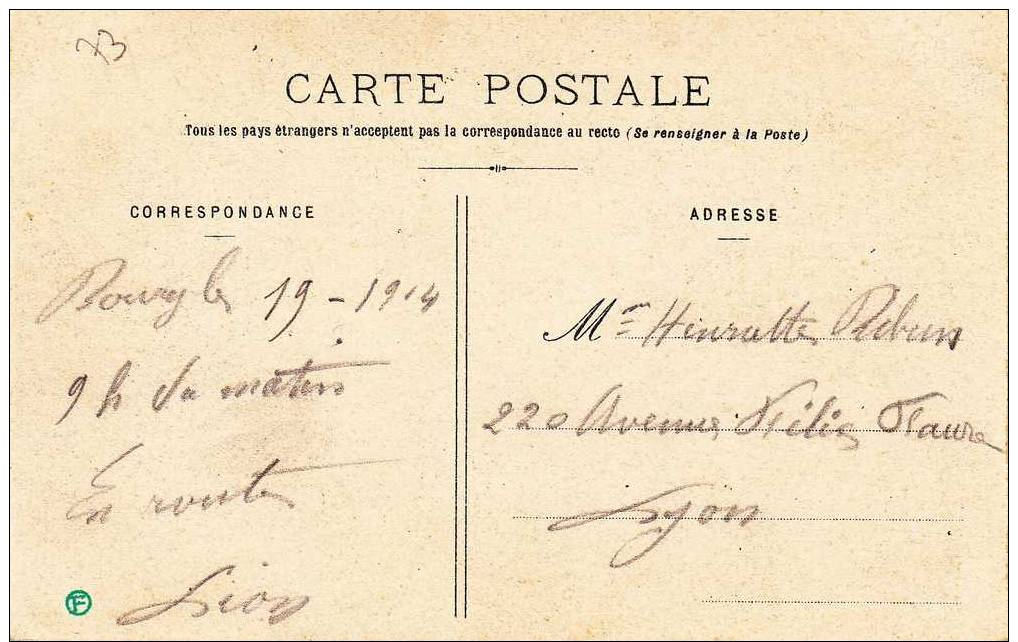 CARTE POSTALE
Tous les pays étrangers n'acceptent pas la correspondance au recto (Se renseigner à la Poste)
CORRESPONDANCE
ADRESSE
Bourg le 19 - 1914
9 h du matin
En route
Léon
Mme Henriette
220 Avenue Félix Faure
Lyon